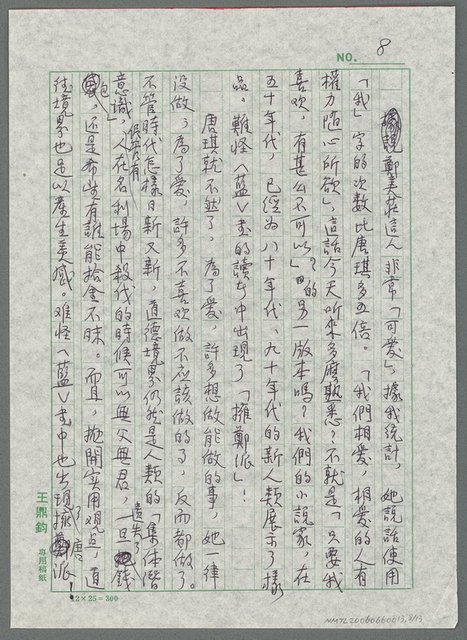 NO. 8
鄭美莊這人非常「可愛」,據我統計,她說話使用
「我」字的次數比唐琪多五倍。「我們相愛,相愛的人有
權力隨心所欲」,這話今天听來多麼熟悉?不就是「只要我
喜欢,有甚么不可以?」的另一版本嗎?我們的小說家,在
五十年代,已經为八十年代、九十年代的新人類展示了樣
品。難怪〈藍〉書的讀者中出現了「擁鄭派」!
唐琪就不然了,為了愛,許多想做能做的事,她一律
没做;為了愛,許多不喜欢做不应該做的事,反而都做了。
不管時代怎樣日新又新,道德境界仍然是人類的「集体潛
意識」,人在名利場中殺伐的時候似乎可以無父無君,一旦遺失錢
包,还是希望有誰能拾金不昧。而且,抛開实用观点,道
德境界也足以產生美感。难怪〈藍〉書中也出現了擁唐派!
12×25=300
王鼎鈞 專用稿紙
NMTL20060660013,8/13